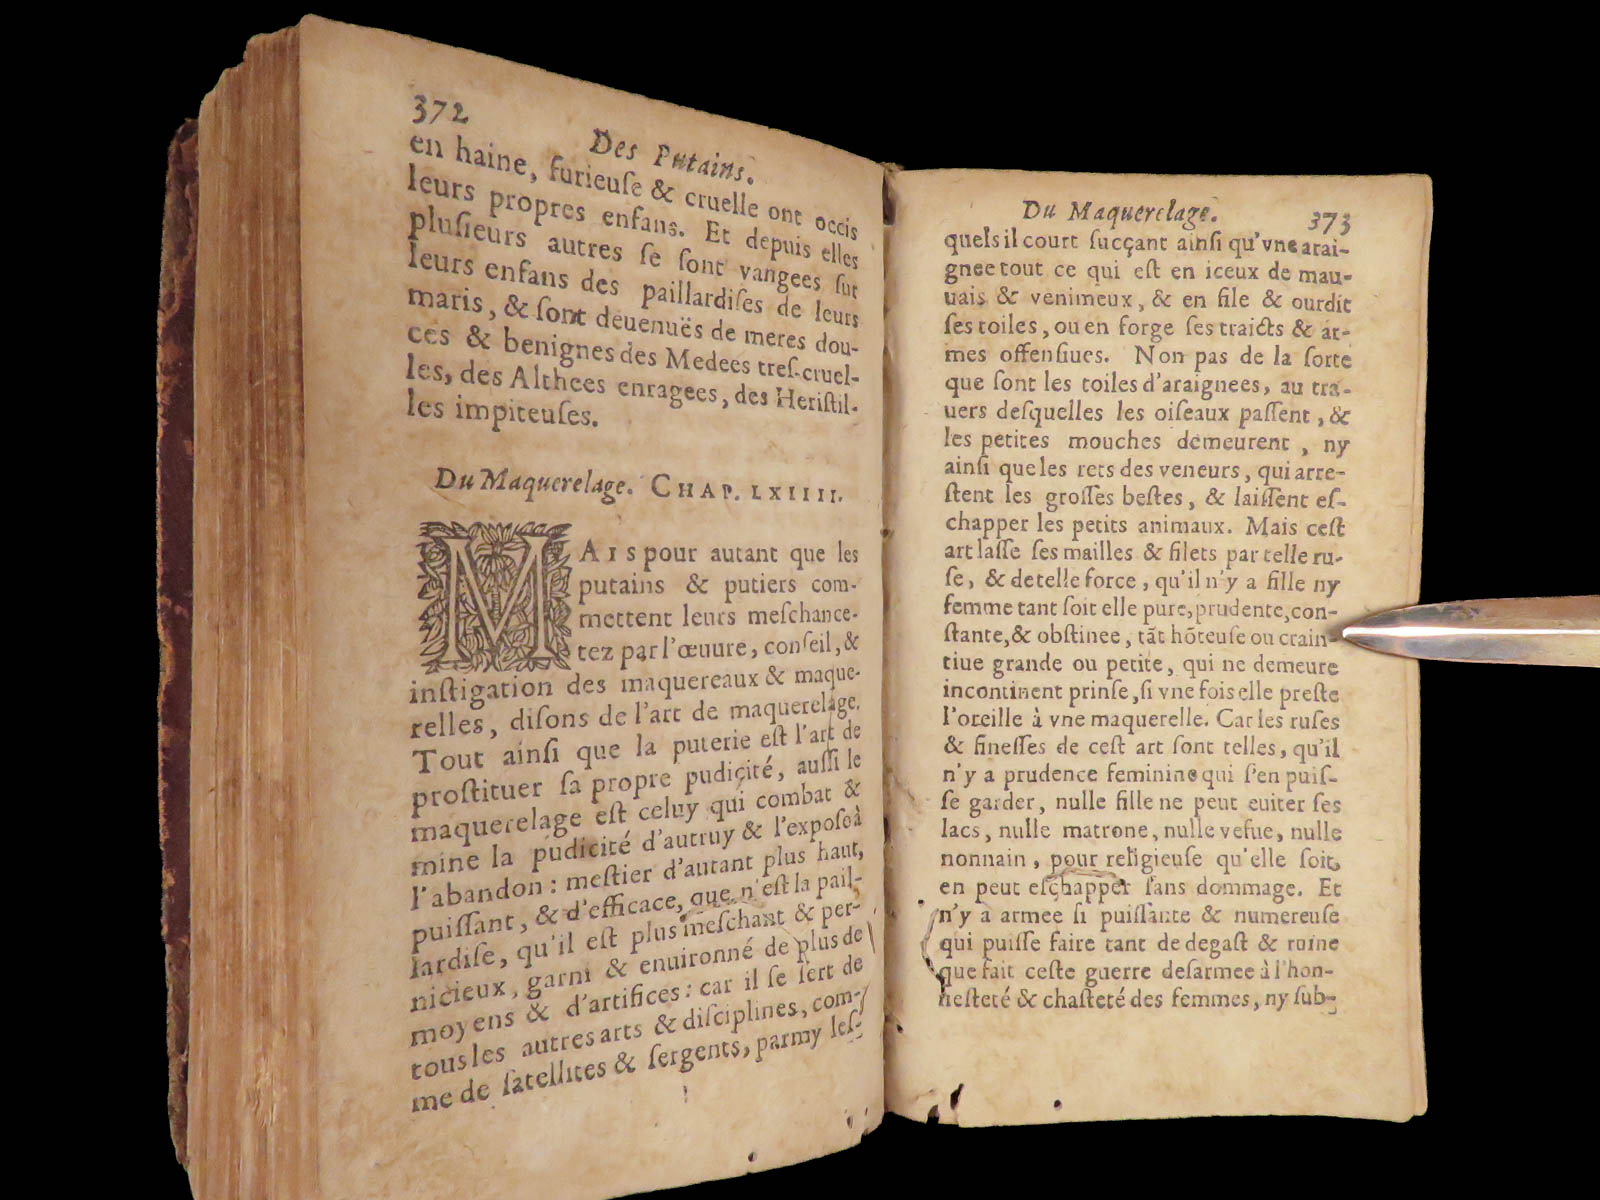 372
Des Putains.
en haine, furieuſe & cruelle ont occis
leurs propres enfans. Et depuis elles
pluſieurs autres ſe ſont vangees ſur
leurs enfans des paillardiſes de leurs
maris, & ſont deuenuës de meres dou-
ces & benignes des Medees treſ-cruel-
les, des Althees enragees, des Heriſtil-
les impiteuſes.
Du Maquerelage. CHAP. LXIIII.
MAIS pour autant que les
putains & putiers com-
mettent leurs meſchance-
tez par l'œuure, conſeil, &
inſtigation des maquereaux & maque-
relles, diſons de l'art de maquerelage.
Tout ainſi que la puterie eſt l'art de
proſtituer ſa propre pudicité, auſſi le
maquerelage eſt celuy qui combat &
mine la pudicité d'autruy & l'expoſe à
l'abandon : meſtier d'autant plus haut,
puiſſant, & d'efficace, que n'eſt la pail-
lardiſe, qu'il eſt plus meſchant & per-
nicieux, garni & enuironné de plus de
moyens & d'artifices : car il ſe ſert de
tous les autres arts & diſciplines, com-
me de ſatellites & ſergents, parmy leſ-
Du Maquerelage.
373
quels il court ſucçant ainſi qu'vne arai-
gnee tout ce qui eſt en iceux de mau-
uais & venimeux, & en file & ourdit
ſes toiles, ou en forge ſes traicts & ar-
mes offenſiues. Non pas de la ſorte
que ſont les toiles d'araignees, au tra-
uers deſquelles les oiſeaux paſſent, &
les petites mouches demeurent, ny
ainſi que les rets des veneurs, qui arre-
ſtent les groſſes beſtes, & laiſſent eſ-
chapper les petits animaux. Mais ceſt
art laſſe ſes mailles & filets par telle ru-
ſe, & de telle force, qu'il n'y a fille ny
femme tant ſoit elle pure, prudente, con-
ſtante, & obſtinee, tāt hōteuſe ou crain-
tiue grande ou petite, qui ne demeure
incontinent prinſe, ſi vne fois elle preſte
l'oreille à vne maquerelle. Car les ruſes
& fineſſes de ceſt art ſont telles, qu'il
n'y a prudence feminine qui ſ'en puiſ-
ſe garder, nulle fille ne peut euiter ſes
lacs, nulle matrone, nulle vefue, nulle
nonnain, pour religieuſe qu'elle ſoit,
en peut eſchapper ſans dommage. Et
n'y a armee ſi puiſſante & numereuſe
qui puiſſe faire tant de degaſt & ruine
que fait ceſte guerre deſarmee à l'hon-
neſteté & chaſteté des femmes, ny ſub-